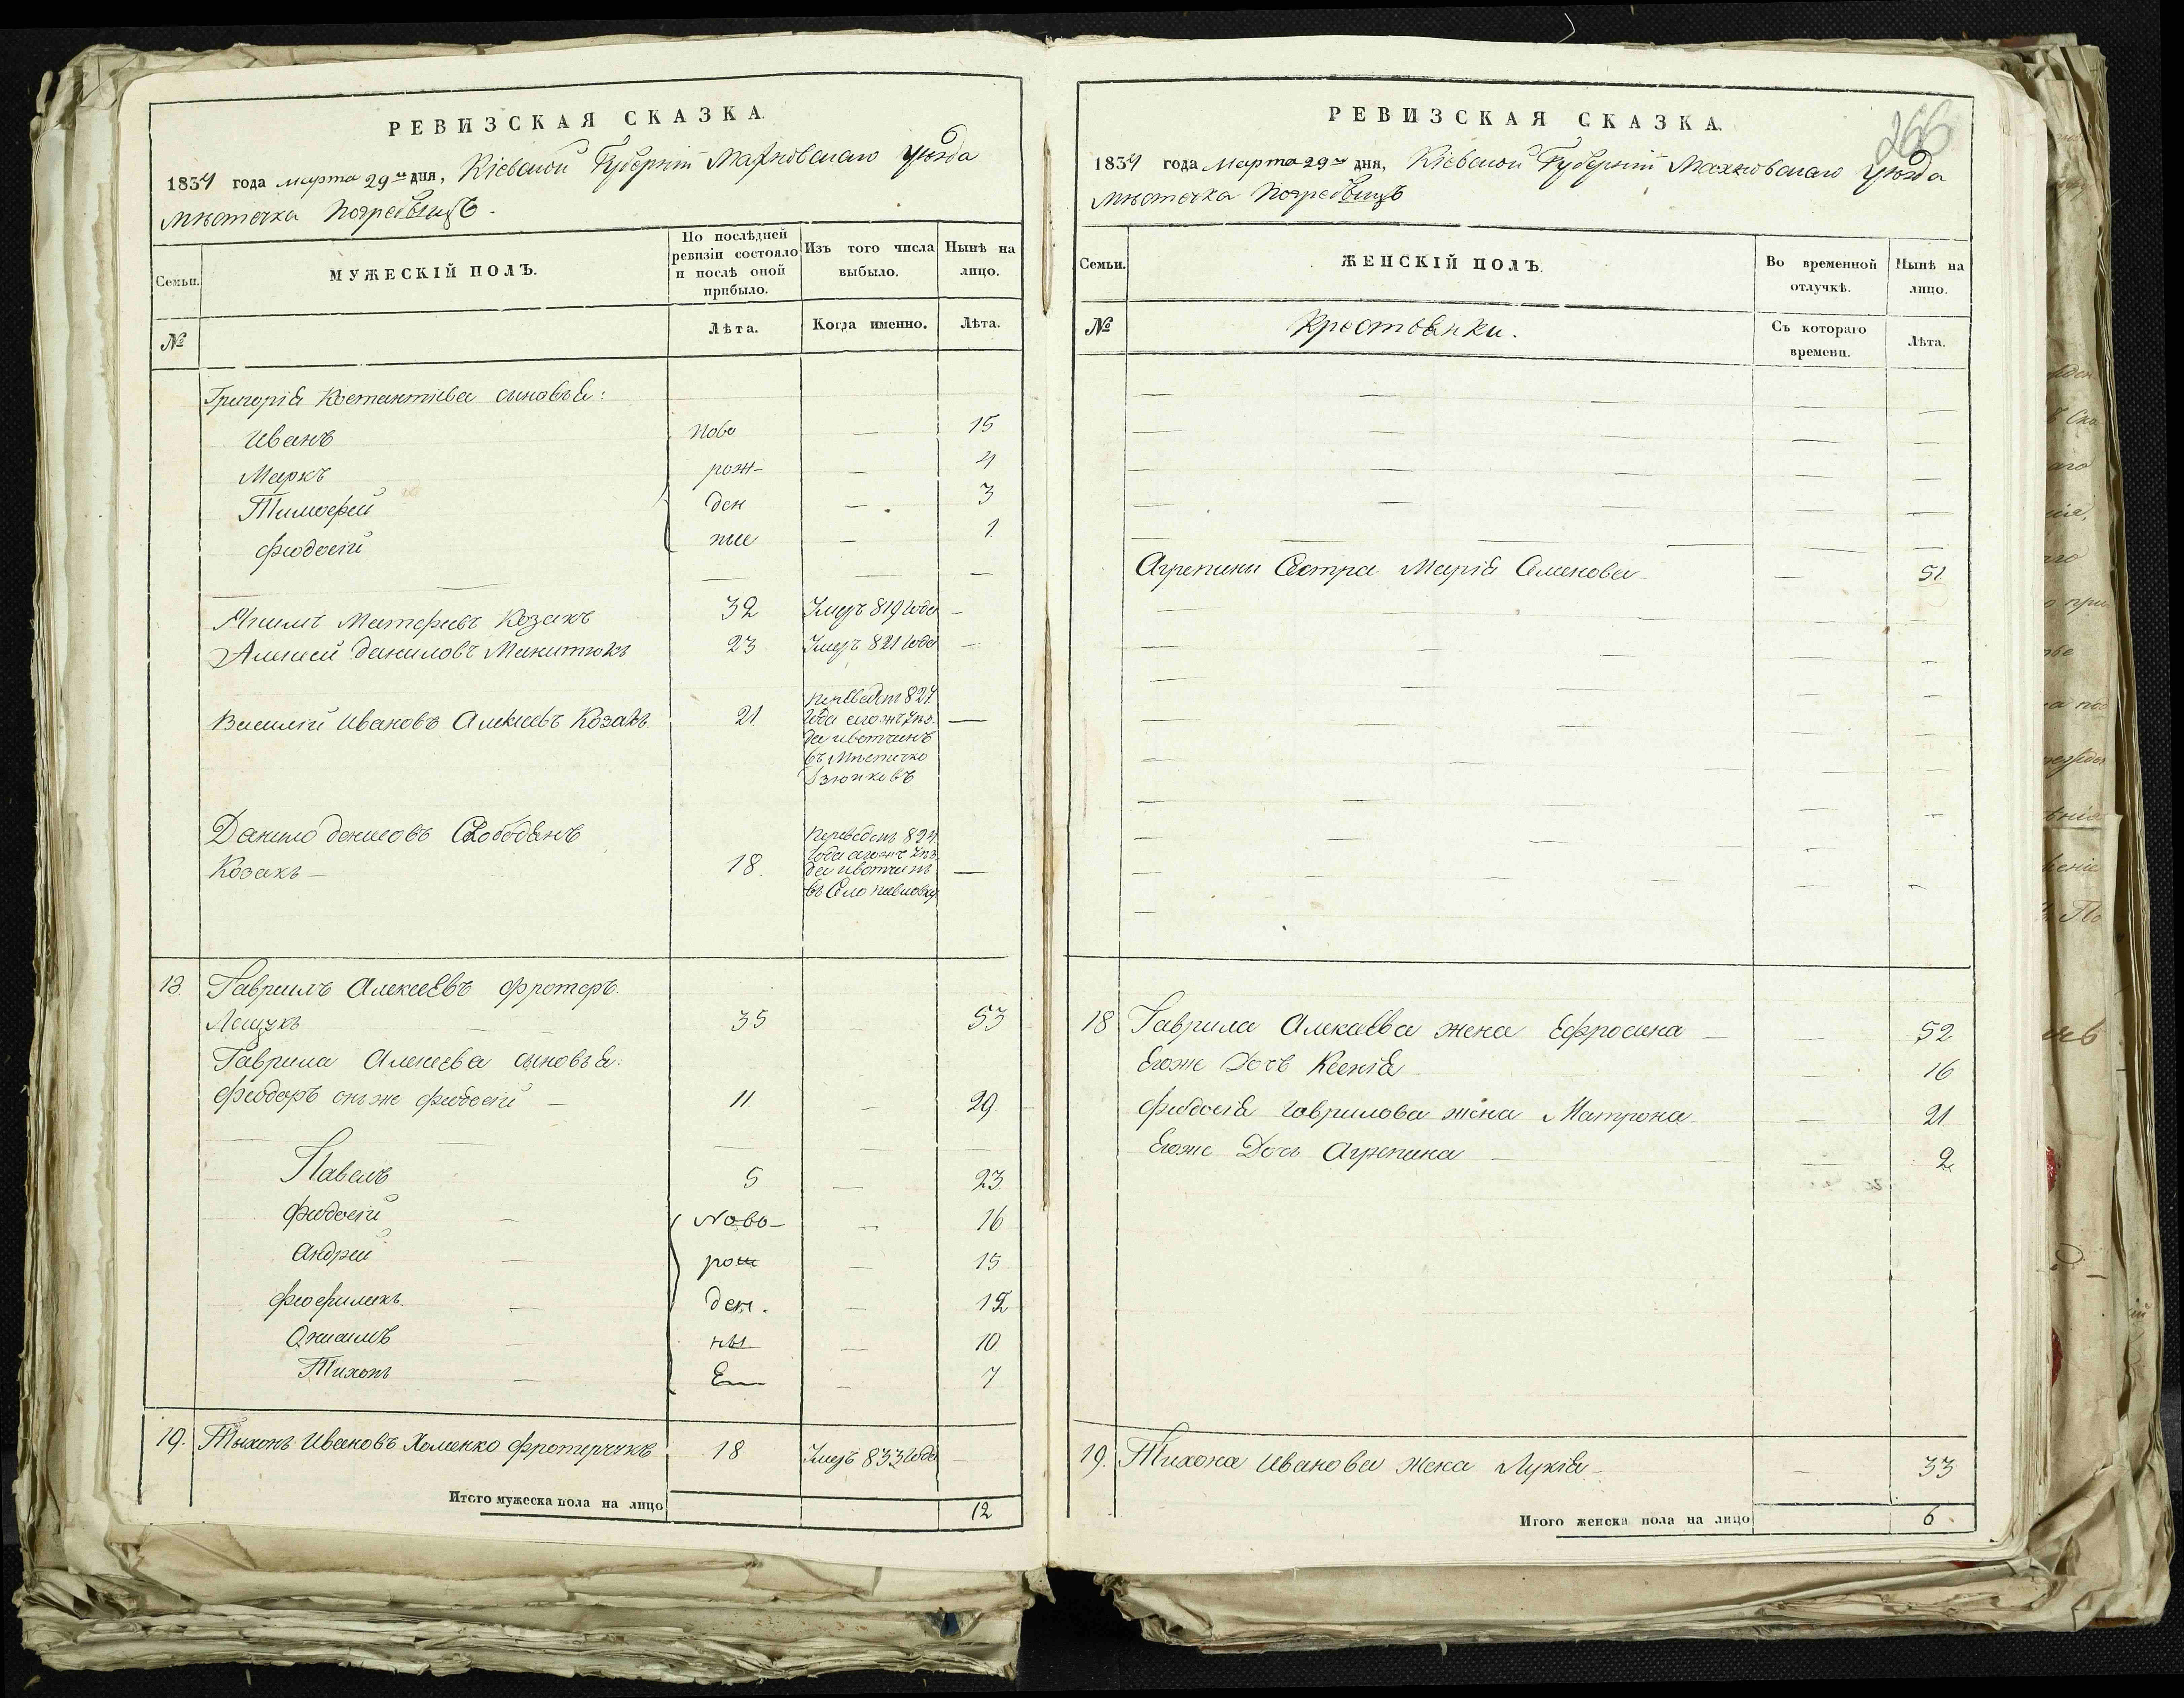 РЕВИЗСКАЯ СКАЗКА.
1834 года марта 29го дня, Кіевской Губерніи Махновскаго уѣзда
мѣстечка Погребищъ.
Семьи.
МУЖЕСКІЙ ПОЛЪ.
По послѣдней ревизіи состояло и послѣ оной прибыло.
Изъ того числа выбыло.
Нынѣ на лицо.
№
Лѣта.
Когда именно.
Лѣта.
Григорія Костантіева сыновья:
Иванъ ново — 15
Марко рож- — 4
Тимофей ден — 3
Федосій ные — 1
Матфеевъ Козакъ 32 Умеръ 819 года —
Алексей Даниловъ Микитюкъ 23 Умеръ 821 года —
Василій Ивановъ Алексеевъ Козакъ 21
Переведенъ 824
года
въ мѣстечко
—
Данило Денисовъ Слободянъ
Козакъ — 18.
Переведенъ 824
года
въ Село
—
18. Гавриилъ Алексеевъ
Лещукъ — — 35 — 53
Гаврила Алексеева сыновья:
Феодоръ онъ же Федосій — 11 — 29
Павелъ 5 — 23
Федосій — Ново- — 16
Андрей — рож — 15
Феофилакъ — ден. — 12
Онисимъ — ны — 10
Тихонъ — Е — 7
19. Тыхонъ Ивановъ Хоменко 18 Умеръ 833 года —
Итого мужеска пола на лицо 12
266
РЕВИЗСКАЯ СКАЗКА.
1834 года Марта 29го дня, Кіевской Губерніи Махновскаго уѣзда
мѣстечка Погребищъ
Семьи.
ЖЕНСКІЙ ПОЛЪ.
Во временной отлучкѣ.
Нынѣ на лицо.
№
Крестьянки.
Съ котораго времени.
Лѣта.
Агрепины Сестра Марія Семенова — 51
18 Гаврила Алексеева жена Ефросина — — 52
Егоже Дочь Ксенія — 16
Федосія Гаврилова жена Матрона — 21
Егоже Дочь Агрепина — — 2
19. Тихона Иванова жена Лукія — — 33
Итого женска пола на лицо 6.